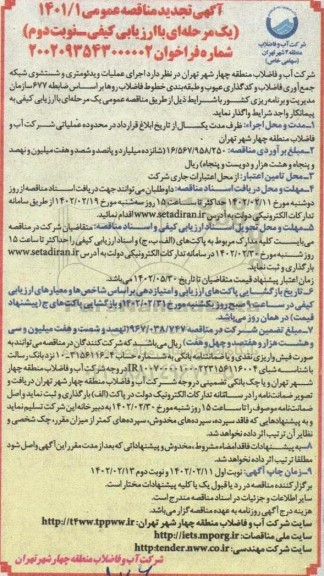 آگهی تجدید مناقصه عمومی ۱۴۰۱/۱
(یک مرحله‌ای با ارزیابی کیفی_نوبت دوم)
شماره فراخوان ۲۰۰۲۰۹۳۵۴۳۰۰۰۰۰۲
شرکت آب و فاضلاب
منطقه ۴ شهر تهران
(سهامی خاص)
شرکت آب و فاضلاب منطقه چهار شهر تهران در نظر دارد اجرای عملیات ویدئومتری و شستشوی شبکه
جمع‌آوری فاضلاب و کدگذاری عیوب و طبقه‌بندی خطوط فاضلاب روها بر اساس ضابطه ۶۷۷ سازمان
مدیریت و برنامه‌ریزی کشور با شرایط ذیل از طریق مناقصه عمومی یک مرحله‌ای با ارزیابی کیفی به
پیمانکار واجد شرایط واگذار نماید.
۱_مدت و محل اجراء: ظرف مدت یکسال از تاریخ ابلاغ قرارداد در محدوده عملیاتی شرکت آب و
فاضلاب منطقه چهار شهر تهران
۲_مبلغ برآوردی مناقصه: ۱۶/۵۶۷/۹۵۸/۲۵۰ (شانزده میلیارد و پانصد و شصت و هفت میلیون و نهصد
و پنجاه و هشت هزار و دویست و پنجاه) ریال
۳_محل تامین اعتبار: از محل اعتبارات جاری شرکت
۴_مهلت و محل دریافت اسناد مناقصه: داوطلبان می‌توانند جهت دریافت اسناد مناقصه از روز
دوشنبه مورخ ۱۴۰۲/۰۲/۱۱ حداکثر تا ساعت ۱۵ روز سه شنبه مورخ ۱۴۰۲/۰۲/۱۹ از طریق سامانه
تدارکات الکترونیکی دولت به آدرس www.setadiran.ir اقدام نمائید.
۵_مهلت و محل تحویل اسناد ارزیابی کیفی و اسناد مناقصه: متقاضیان شرکت در مناقصه
می‌بایست کلیه مدارک مربوط به پاکت‌های (الف، ب، ج) و اسناد ارزیابی کیفی را حداکثر تا ساعت ۱۵
روز شنبه مورخ ۱۴۰۲/۰۲/۳۰ در سامانه تدارکات الکترونیکی دولت به آدرس www.setadiran.ir
بارگذاری و ثبت نمایند.
زمان اعتبار پیشنهاد قیمت متقاضیان تا تاریخ ۱۴۰۲/۰۵/۳۰ می‌باشد.
۶_تاریخ بازگشایی پاکت‌های ارزیابی و امتیازدهی بر اساس شاخص‌ها و معیارهای ارزیابی
کیفی در ساعت ۹ صبح روز یکشنبه مورخ ۱۴۰۲/۰۲/۳۱ و بازگشایی پاکت‌های ج (پیشنهاد
قیمت) در همان روز می‌باشد.
۷_مبلغ تضمین شرکت در مناقصه ۹۶۷/۰۳۸/۷۴۷ (نهصد و شصت و هفت میلیون و سی
و هشت هزار و هفتصد و چهل و هفت) ریال می‌باشد که شرکت کنندگان در مناقصه می‌توانند به
صورت فیش واریزی نقدی و یا ضمانتنامه بانکی به شماره حساب
با شناسه شبای در وجه شرکت آب و فاضلاب منطقه چهار
شهر تهران و یا چک بانکی تضمینی در وجه شرکت آب و فاضلاب منطقه چهار شهر تهران دریافت و
تصویر ضمانت‌نامه را در سامانه تدارکات الکترونیک دولت در پاکت (الف) بارگذاری و ثبت نماید و اصل
ضمانت‌نامه موصوف را تا ساعت ۱۵ روز شنبه مورخ ۱۴۰۲/۰۲/۳۰ به دبیرخانه این شرکت تسلیم نماید
و به پیشنهادهایی که فاقد سپرده، سپرده‌های مخدوش، سپرده‌های کمتر از میزان مقرر، چک شخصی و
نظایر آن ترتیب اثر داده نخواهد شد.
۸_به پیشنهادات فاقد امضاء، مشروط، مخدوش و پیشنهاداتی که بعد از مدت مقرر این آگهی واصل شود
مطلقا ترتیب اثر داده نخواهد شد.
۹_زمان چاپ آگهی: نوبت اول ۱۴۰۲/۰۲/۱۱ و نوبت دوم ۱۴۰۲/۰۲/۱۳
برگزارکننده مناقصه در رد یا قبول یک یا کلیه پیشنهادات مختار است.
سایر اطلاعات و جزئیات در اسناد مناقصه مندرج است.
هزینه درج آگهی روزنامه به عهده مناقصه گزار می‌باشد.
سایت شرکت آب و فاضلاب منطقه چهار شهر تهران: http://t4ww.tpww.ir
سایت ملی مناقصات: http://iets.mporg.ir
سایت شرکت مهندسی: http:tender.nww.co.ir
شرکت آب و فاضلاب منطقه چهار شهر تهران